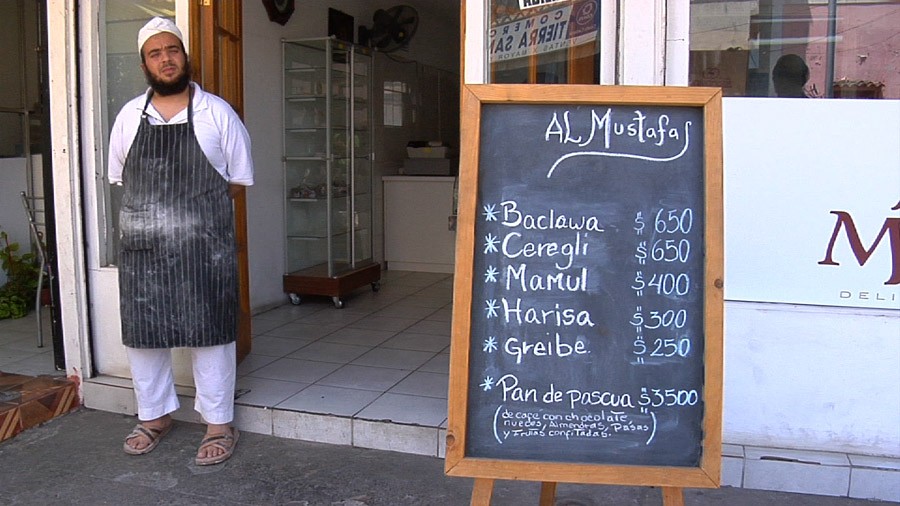 COMERC
TIERRA SAN
AL Mustafa
* Baclawa $ 650
* Ceregli $ 650
* Mamul $ 400
* Harisa $ 300
* Greibe $ 250
* Pan de pascua $3500
(de café con chocolate,
nueces, Almendras, Pasas
y frutas confitadas.)
M
DELI